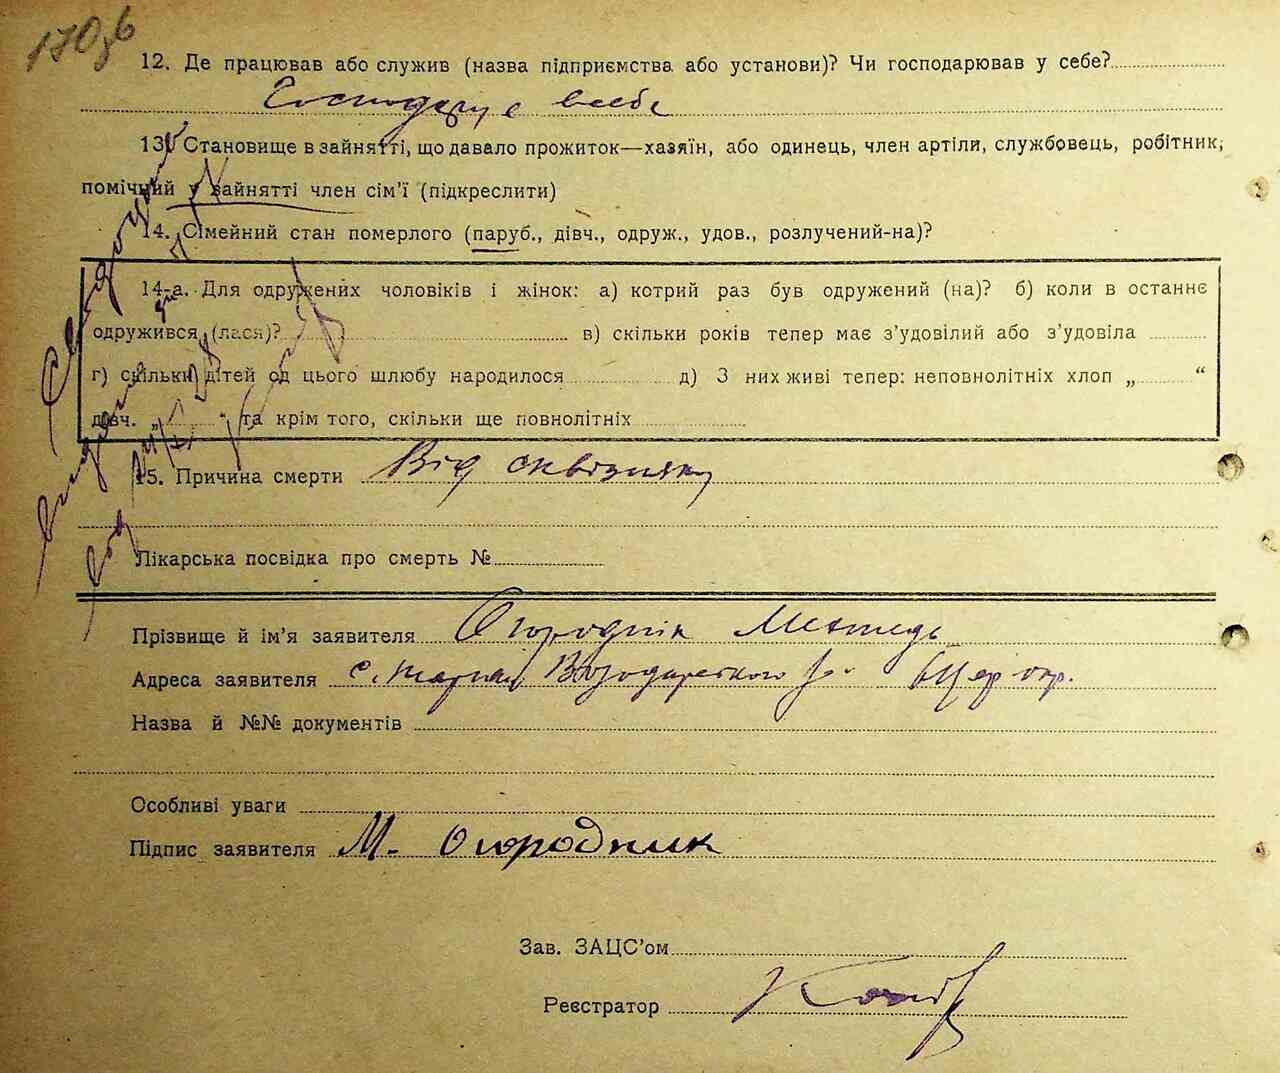 170зв
12. Де працював або служив (назва підприємства або установи)? Чи господарював у себе?
Господарує в себе
13. Становище в зайнятті, що давало прожиток—хазяїн, або одинець, член артіли, службовець, робітник,
помічний у зайнятті член сім'ї (підкреслити)
14. Сімейний стан померлого (паруб., дівч., одруж., удов., розлучений-на)?
14-а. Для одружених чоловіків і жінок: а) котрий раз був одружений (на)? б) коли в останнє
одружився (лася)? в) скільки років тепер має з'удовілий або з'удовіла
г) скільки дітей од цього шлюбу народилося д) З них живі тепер: неповнолітніх хлоп „ “
дівч. „ “ та крім того, скільки ще повнолітніх
15. Причина смерти Від сквізняку
Лікарська посвідка про смерть №
Прізвище й ім'я заявителя Огороднік
Адреса заявителя с. Володарського р. БЦер окр.
Назва й №№ документів
Особливі уваги
Підпис заявителя М. Огородник
Зав. ЗАЦС'ом
Реєстратор